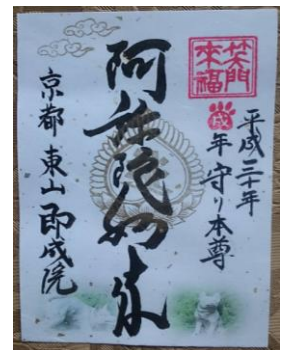 笑門
來福
平成三十年
戌年 守り本尊
阿弥陀如来
京都 東山 即成院